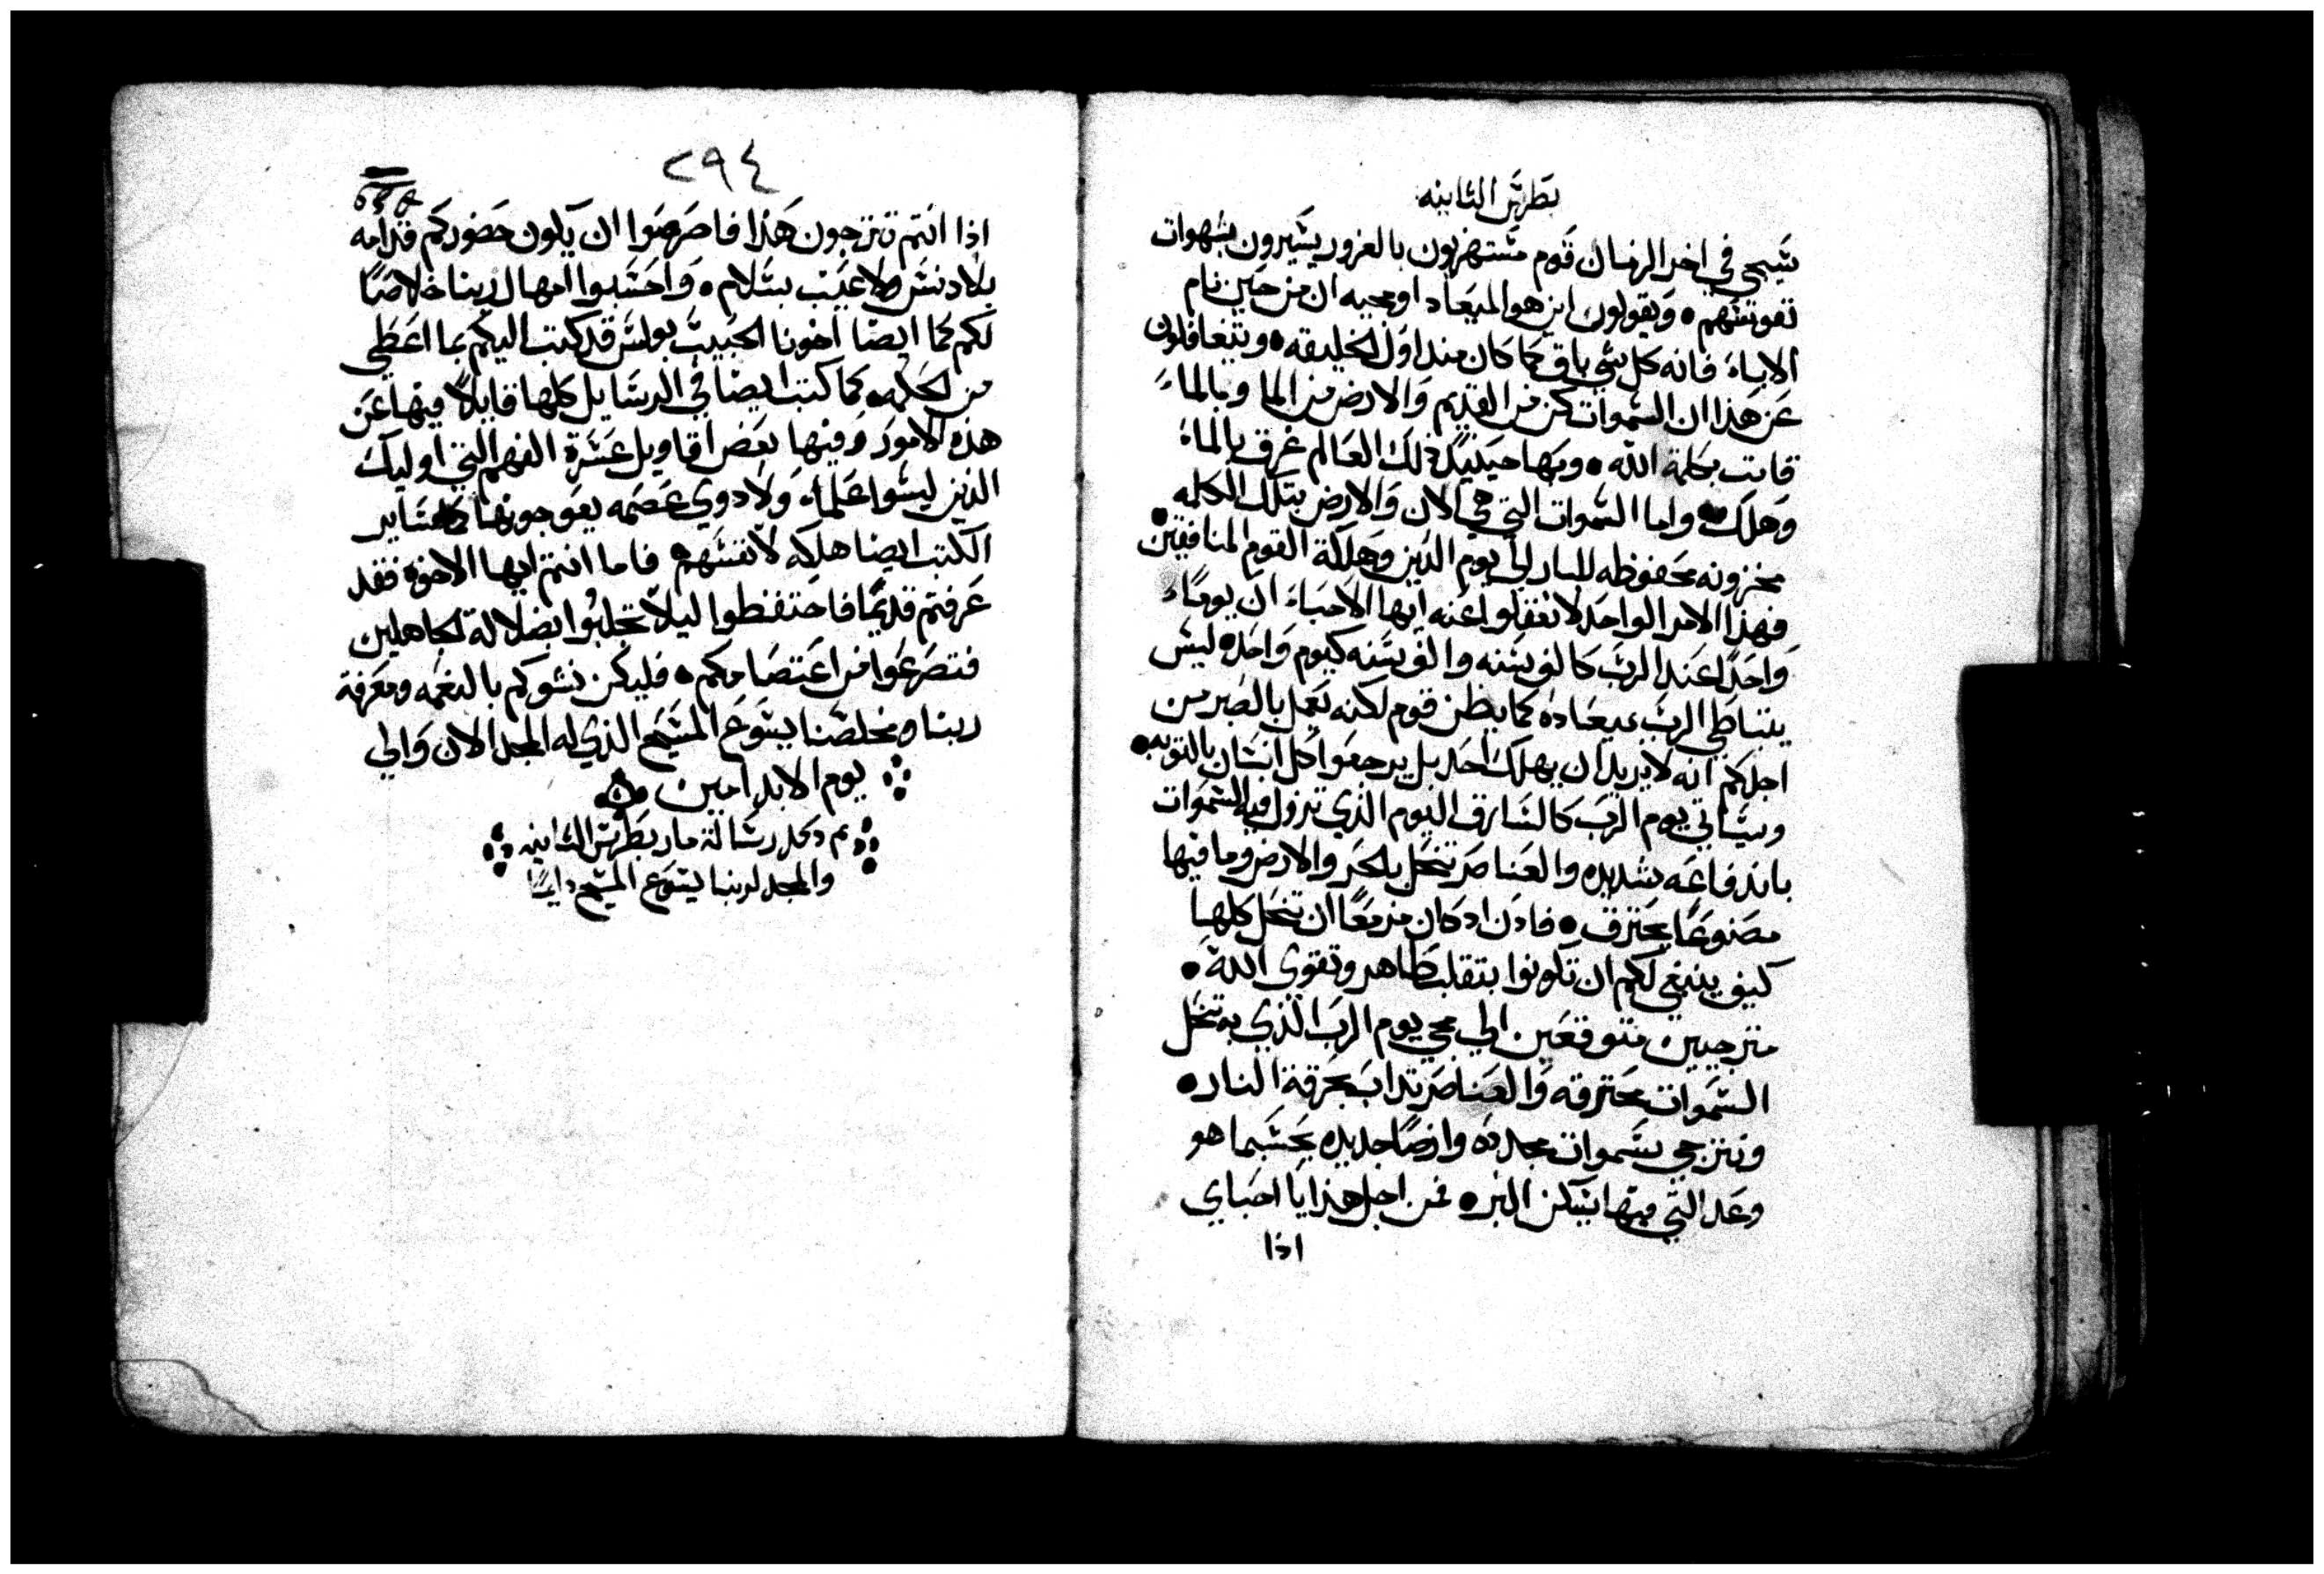 بطرس الثانيه
سيجي في اخر الزمان قوم مستهزيون بالغرور يسيرون بشهوات
نفوسهم • ويقولون اين هو الميعاد او مجيه ان من حين نام
الاباء فانه كل شي باق كما كان منذ اول الخليقه • ويتغافلون
عن هذا ان السموات كن من القديم والارض من الما وبالماء
قامت بكلمة الله • وبها حينيذ ذلك العالم غرق بالماء
وهلك • واما السموات التي هي الان والارض بتلك الكلمه
مخزونه محفوظه للنار الى يوم الدين وهلكة القوم المنافقين •
فهذا الامر الواحد لا تغفلوا عنه ايها الاحباء ان يوماء
واحدا عند الرب كالف سنه والف سنه كيوم واحد • ليس
يتباطي الرب بميعاده كما يظن قوم لكنه تمهل بالصبر من
اجلكم انه لا يريد ان يهلك احد بل يرجعوا كل انسان بالتوبه •
وسياتي يوم الرب كالسارق اليوم الذي تزول فيه السموات
باندفاعه شديده والعناصر تنحل بالحر والارض وما فيها
مصنوعا يحترق • فاذن اذ كان مزمعا ان تنحل كلها
كيف ينبغي لكم ان تكونوا بتقلب طاهر وتقوى الله •
مترجيين متوقعين الي مجي يوم الرب الذي به تنحل
السموات محترقه والعناصر تداب بحرقة النار •
ونترجي سموات مجدده وارضا جديده بحسبما هو
وعد التي فيها يسكن البر • فمن اجل هذا يا احباي
اذا
٢٩٤
اذا انتم تترجون هذا فاحرصوا ان يكون حضوركم قدامه
بلا دنس ولا عيب بسلام • واحسبوا امهال ربنا خلاصا
لكم كما ايضا اخونا الحبيب بولس قد كتب اليكم بما اعطي
من الحكمه • كما كتب ايضا في الرسايل كلها قايلا فيها عن
هذه الامور وفيها بعض اقاويل عسرة الفهم التي اوليك
الذين ليسوا علماء ولا دوي عصمه يعوجونها كساير
الكتب ايضا هلكه لانفسهم • فاما انتم ايها الاخوه فقد
عرفتم قديما فاحتفظوا ليلا تجلبوا بضلالة الجاهلين
فتصرعوا من اعتصامكم • فليكن نشوكم بالنعمه ومعرفة
ربنا ومخلصنا يسوع المسيح الذي له المجد الان والي
يوم الابد امين
تم وكمل رسالة مار بطرس الثانيه
والمجد لربنا يسوع المسيح دايما